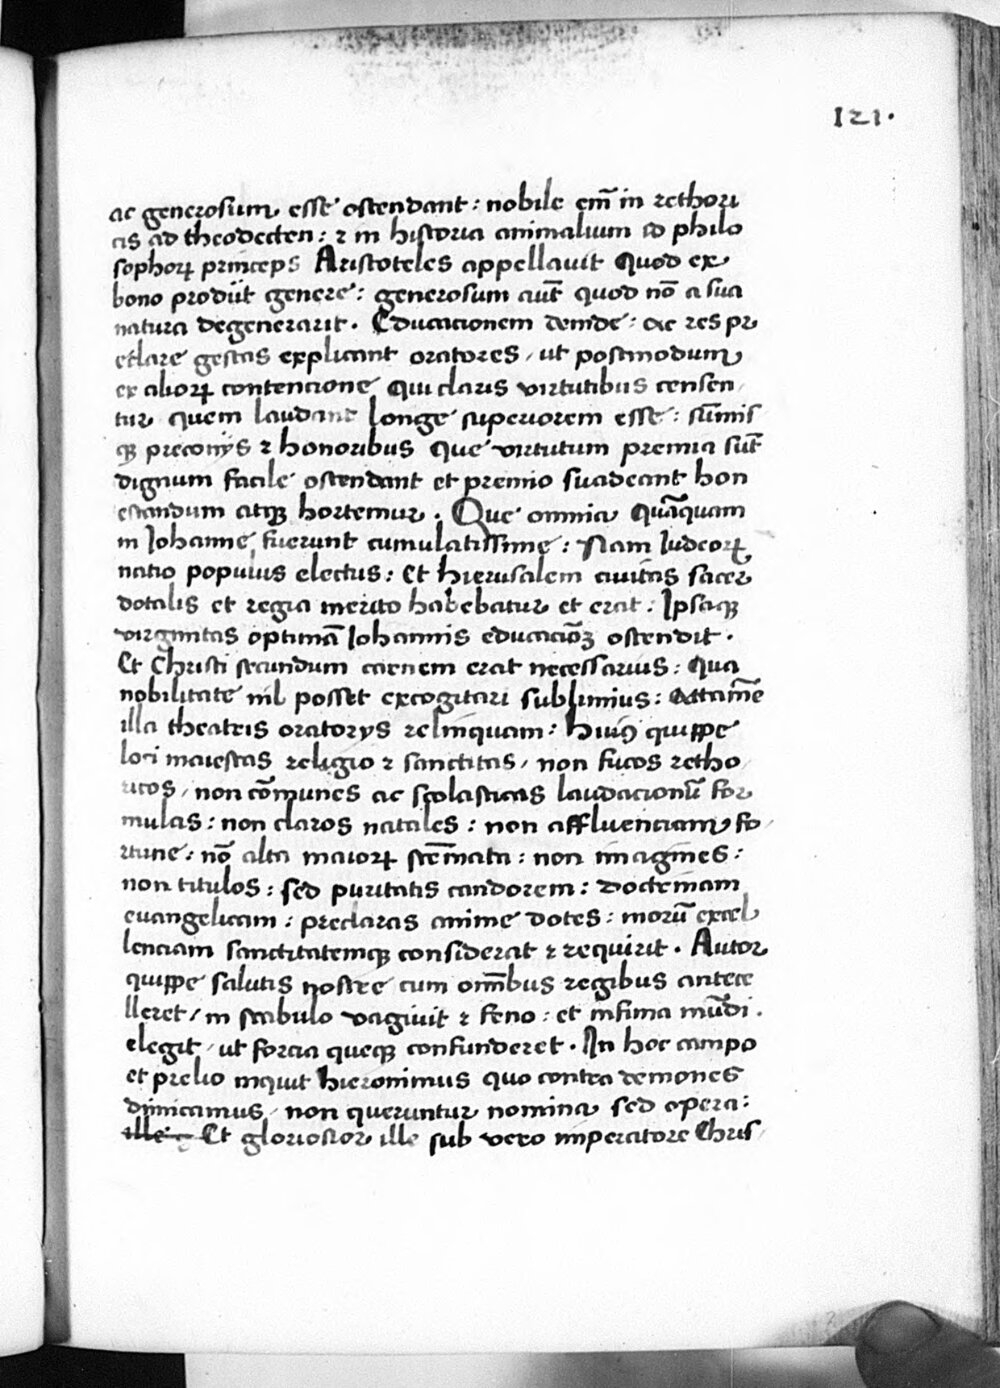 121.
ac generosum esse ostendant : nobile em̄ in rethori
cis ad theodecten : ⁊ in historia animalium id philo
sophoꝝ princeps Aristoteles appellavit Quod ex
bono prodiit genere : generosum aut̄ quod nō a sua
natura degenerarit . Educacionem deinde : ac res pr
eclare gestas explicant oratores / ut postmodum
ex alioꝝ contencione Qui claris virtutibus censen
tur quem laudant longe superiorem esse : sūmis
qꝫ preconijs ⁊ honoribus Que virtutum premia sūt
dignum facile ostendant et premio suadeant hon
estandum atqꝫ hortemur . Que omnia Quāquam
in Iohanne fuerunt cumulatissime : Nam Iudeoꝝ
natio populus electus : Et hierusalem civitas sacer
dotalis et regia merito habebatur et erat : Ipsaqꝫ
virginitas optimā Iohannis educacioēꝫ ostendit .
Et Christi secundum carnem erat necessarius : Qua
nobilitate nil posset excogitari sublimius : Attamē
illa theatris oratorijs relinquam : huiꝰ quippe
loci maiestas religio ⁊ sanctitas / non fucos retho
ricos / non cōmunes ac scolasticas laudacionū for
mulas : non claros natales : non affluenciam fo
rtune : nō alta maioꝝ stēmata : non imagines :
non titulos : sed puritatis candorem : doctrinam
euangelicam : preclaras anime dotes : morū excel
lenciam sanctitatemqꝫ considerat ⁊ requirit . Autor
quippe salutis nostre cum om̄ibus regibus antece
lleret / in stabulo vagivit ⁊ feno : et infima mūdi .
elegit / ut forcia queqꝫ confunderet . In hoc campo
et prelio inquit hieronimus quo contra demones
dimicamus / non queruntur nomina sed opera :
ille Et gloriosior ille sub vero imperatore Chris